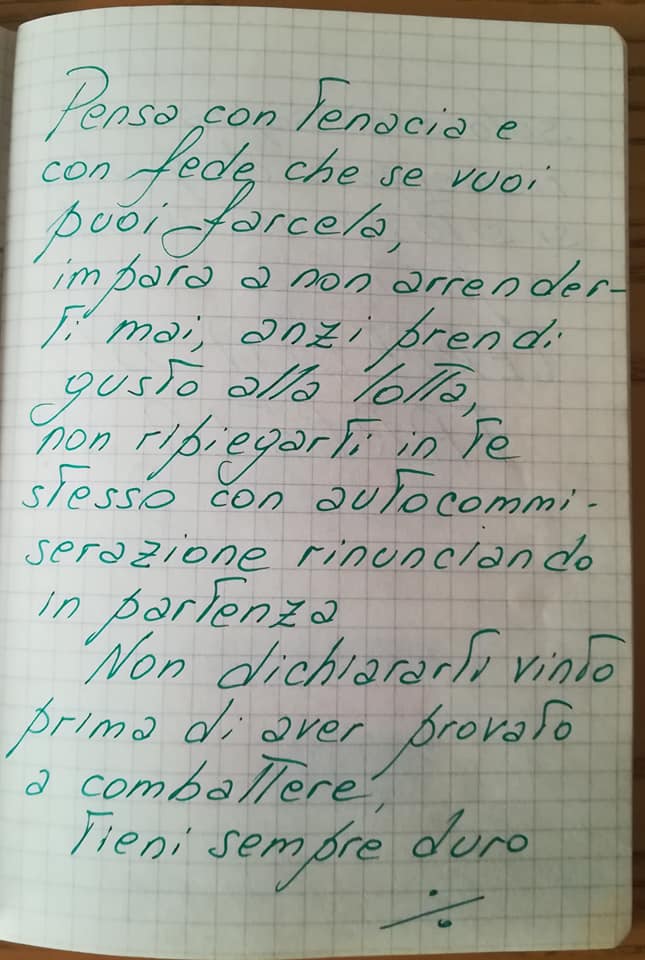 Pensa con Tenacia e
con fede che se vuoi
puoi farcela,
impara a non arrender-
Ti mai, anzi prendi
gusto alla lotta,
non ripiegarti in Te
stesso con autocommi-
serazione rinunciando
in partenza
Non dichiararti vinto
prima di aver provato
a combattere,
Tieni sempre duro